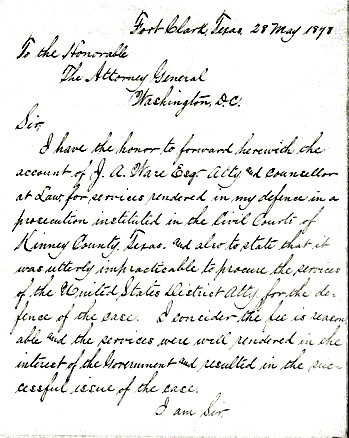 Fort Clark, Texas, 28 May 1878
To the Honorable
The Attorney General
Washington, D.C.
Sir,
I have the honor to forward herewith the
account of J. A. Ware Esqr Atty and Councellor
at Law, for services rendered in my defence in a
prosecution instituted in the Civil Courts of
Kinney County, Texas. and also to state that it
was utterly impracticable to procure the services
of the United States District Atty, for the de-
fence of the case. I consider the fee is reason
able and the services were well rendered in the
interest of the Government and resulted in the suc-
cessful issue of the case.
I am Sir,